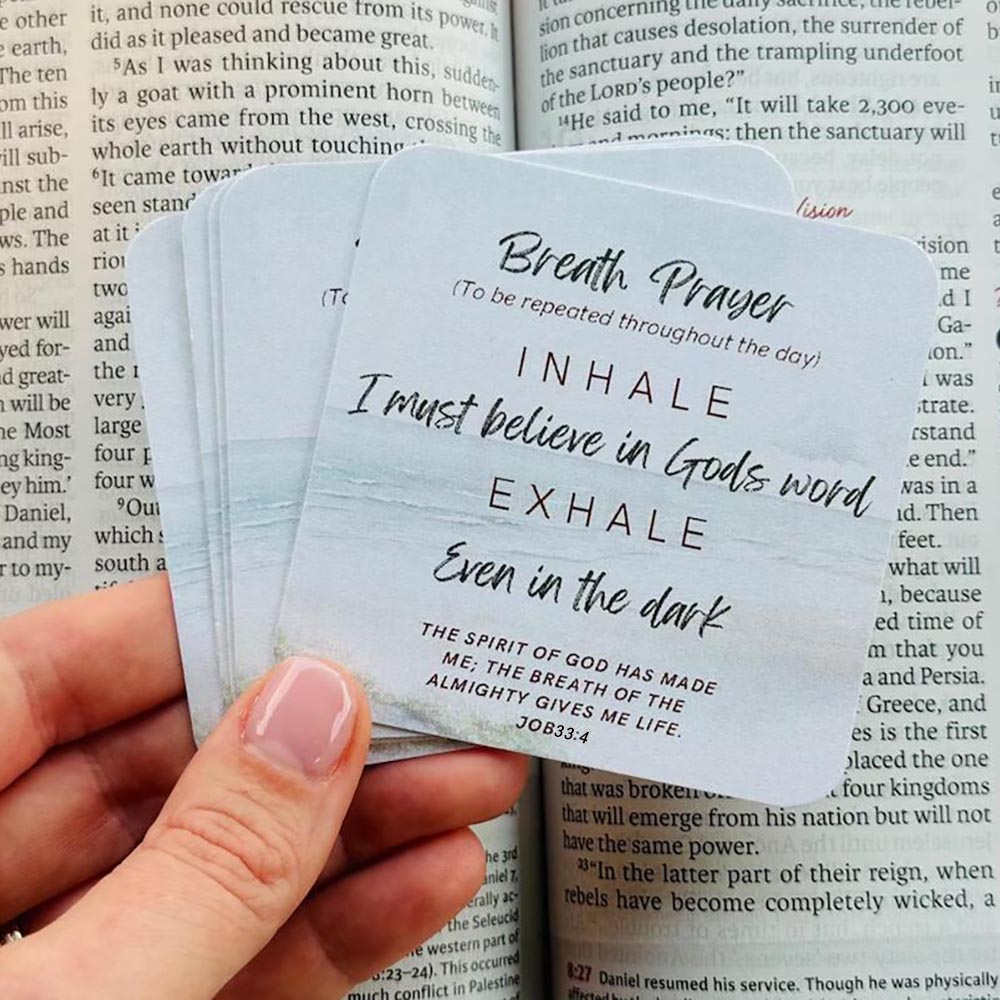 Breath Prayer
(To be repeated throughout the day)
INHALE
I must believe in Gods word
EXHALE
Even in the dark
THE SPIRIT OF GOD HAS MADE
ME; THE BREATH OF THE
ALMIGHTY GIVES ME LIFE.
JOB33:4
(To
e other
e earth,
The ten
om this
ll arise,
ill sub-
nst the
ple and
ws. The
s hands
wer will
yed for-
d great-
n will be
he Most
ng king-
ey him.'
Daniel,
and my
r to my-
it, and none could rescue from its power. It
did as it pleased and became great.
5As I was thinking about this, sudden-
ly a goat with a prominent horn between
its eyes came from the west, crossing the
whole earth without touching
6It came toward
seen stand
at it
riou
two
agai
and
the
very
large
four p
four w
9Out
which s
south a
he 3rd
aniel 7,
erally ac-
the Seleucid
e western part of
8:23–24). This occurred
much conflict in Palestine
sion concerning the daily sacrifice, the rebel-
lion that causes desolation, the surrender of
the sanctuary and the trampling underfoot
of the LORD's people?”
14He said to me, “It will take 2,300 eve-
and mornings; then the sanctuary will
Vision
vision
me
d I
Ga-
ion.”
was
strate.
rstand
e end.”
was in a
nd. Then
feet.
what will
, because
ed time of
m that you
a and Persia.
Greece, and
es is the first
placed the one
four kingdoms
that was broken
that will emerge from his nation but will not
have the same power.
23“In the latter part of their reign, when
rebels have become completely wicked, a
8:27 Daniel resumed his service. Though he was physically